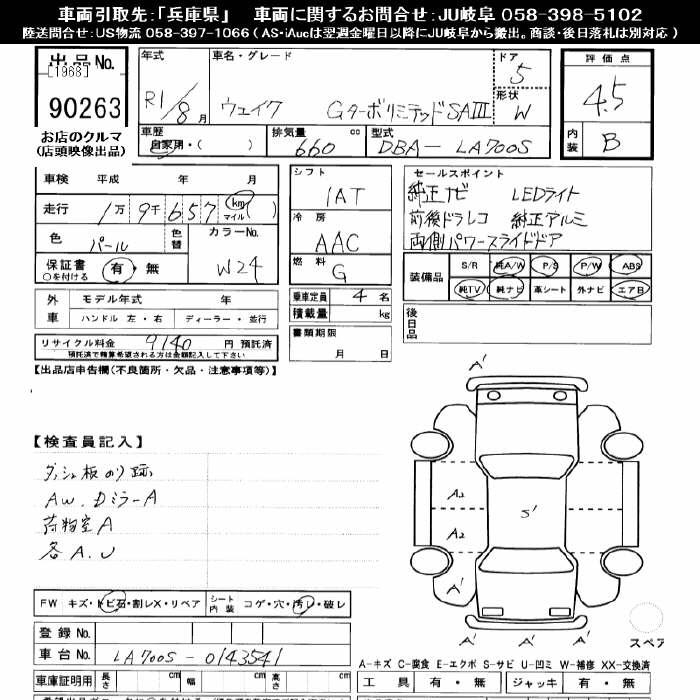 車両引取先:「兵庫県」 車両に関するお問合せ:JU岐阜 058-398-5102
陸送問合せ:US物流 058-397-1066 ( AS・iAucは翌週金曜日以降にJU岐阜から搬出。商談・後日落札は別対応 )
出品No.
[1968]
90263
お店のクルマ
(店頭映像出品)
年式
R1/8月
車名・グレード
ウェイク GターボリミテッドSAⅢ
ドア
5
形状
W
評価点
4.5
内装
B
車歴
自家用・( )
排気量
660 cc
型式
DBA- LA700S
車検 平成 年 月
走行 1万9千657 (km マイル)( )
色 パール
色替
カラーNo.
W24
保証書
○を付ける
有・無
外車
モデル年式 年
ハンドル 左・右 ディーラー・並行
リサイクル料金 9140 円 預託済
預託済で精算希望される方は金額記入して下さい
シフト
IAT
冷房
AAC
燃料
G
乗車定員 4 名
積載量 kg
書類期限
月 日
セールスポイント
純正ナビ LEDライト
前後ドラレコ 純正アルミ
両側パワースライドドア
装備品
S/R 純A/W P/S P/W ABS
純TV 純ナビ 革シート 外ナビ エアB
後日品
【出品店申告欄(不良箇所・欠品・注意事項等)】
【検査員記入】
ダッシュ板のり跡
AW.DミラーA
荷物室A
各A.U
A'
A2
A2
S'
A'
A' A' A'
スペア
FW キズ・トビ石・割レX・リペア
シート内装 コゲ・穴・汚レ・破レ
登録No.
車台No. LA700S-0143541
車庫証明用 長さ 幅 高さ
A-キズ C-腐食 E-エクボ S-サビ U-凹ミ W-補修 XX-交換済
工具 有・無 ジャッキ 有・無